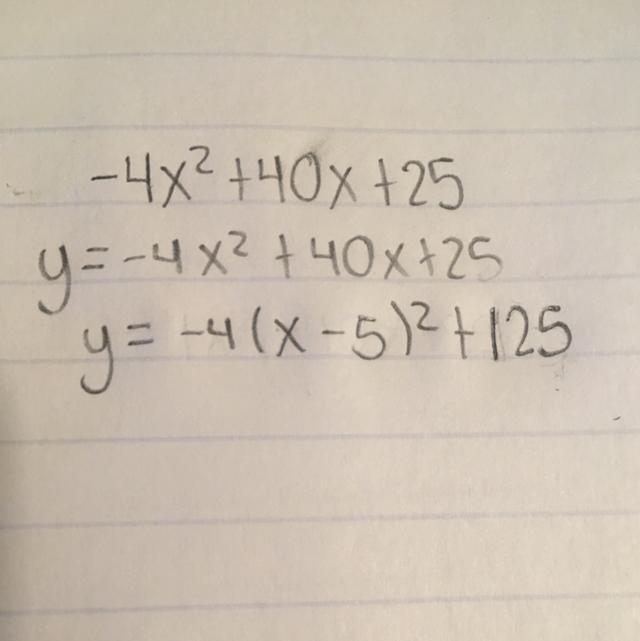 -4x² +40x +25
y = -4x² +40x+25
y = -4(x-5)²+125